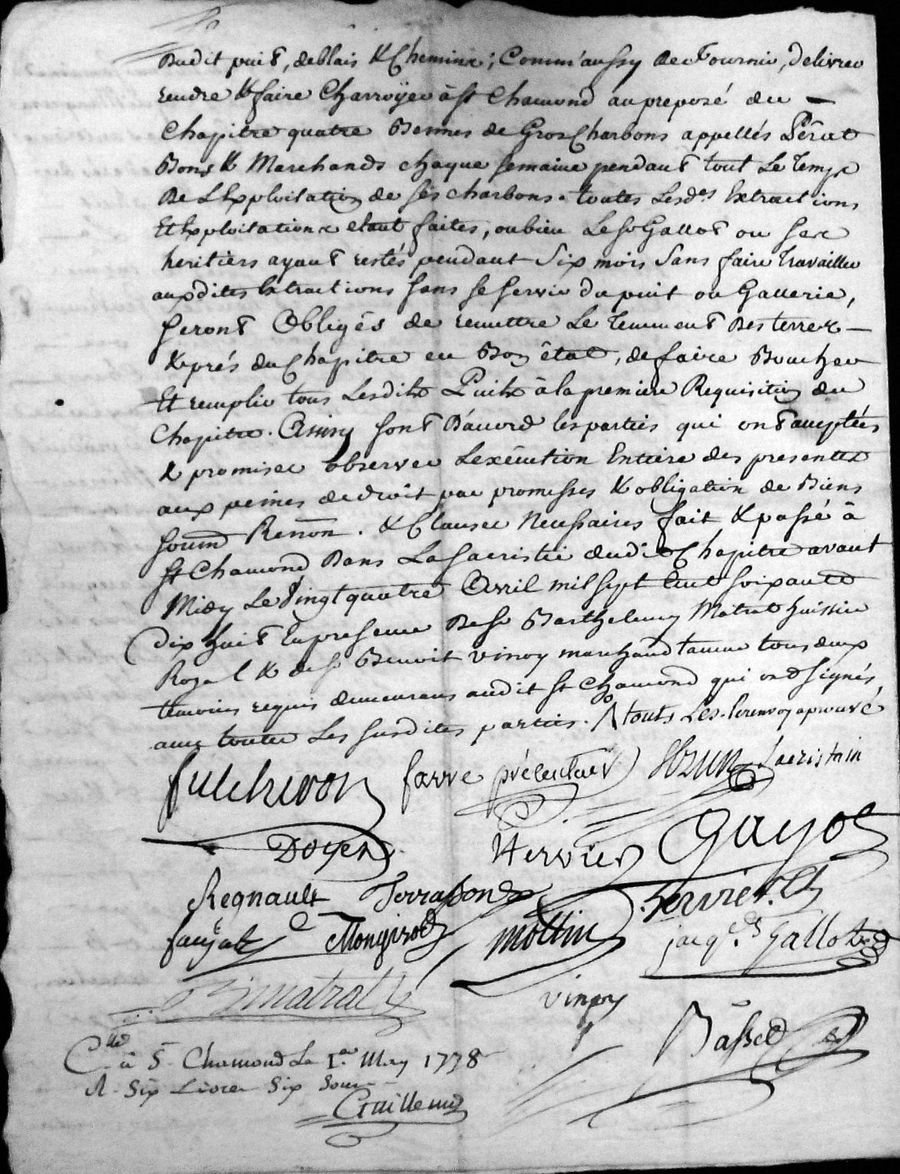 Dudit puit, deblais & Chemins; Comm'aussy de fournir, delivrer
rendre & faire Charroyer à St Chamond au preposé du –
Chapitre quatre Bennes de Gros Charbons appellés Pérat
Bons & Marchands chaque semaine pendant tout Le Temps
De L'Exploitation de ses charbons. toutes Lesd.es Extractions
Et Exploitations etant faites, ou bien Le Sr Gallot ou ses
heritiers ayant restés pendant Six mois Sans faire Travailler
auxdites Extractions Sans se servir du puit ou Gallerie,
seront Obligés de remettre Le Tenement Des terres –
& prés du Chapitre en Bon état, de faire Boucher
Et remplir tous Lesdits Puits à la premiere Requisition du
Chapitre. Ainsy sont D'accord les parties qui ont acceptées
& promises observer L'exécution Entiere des presentes
aux peines de droit par promesses & obligation de Biens
soum Renon. & Clauses Necessaires fait & passé à
St Chamond Dans La Sacristie dudit Chapitre avant
Midy Le Vingt quatre Avril mil sept Cent soixante
Dix huit En presence De Sr Barthelemy Matrat huissier
Royal & de Sr Benoit Vinoy marchand taneur tous deux
temoins requis demeurans audit St Chamond qui ont signés
avec toutes Les susdites parties. A touts Les renvoy aprouvé
fulchiron farre précenteur Sacristain
Doyen Hervier Gayot
Regnault Terrasson hervier
Mongirod mottin jacq.es Gallot
Bmatrat vinoy
Bâsset
C.llé à St Chamond Le 1.er May 1778
R. Six Livres Six Sous
Guillemin